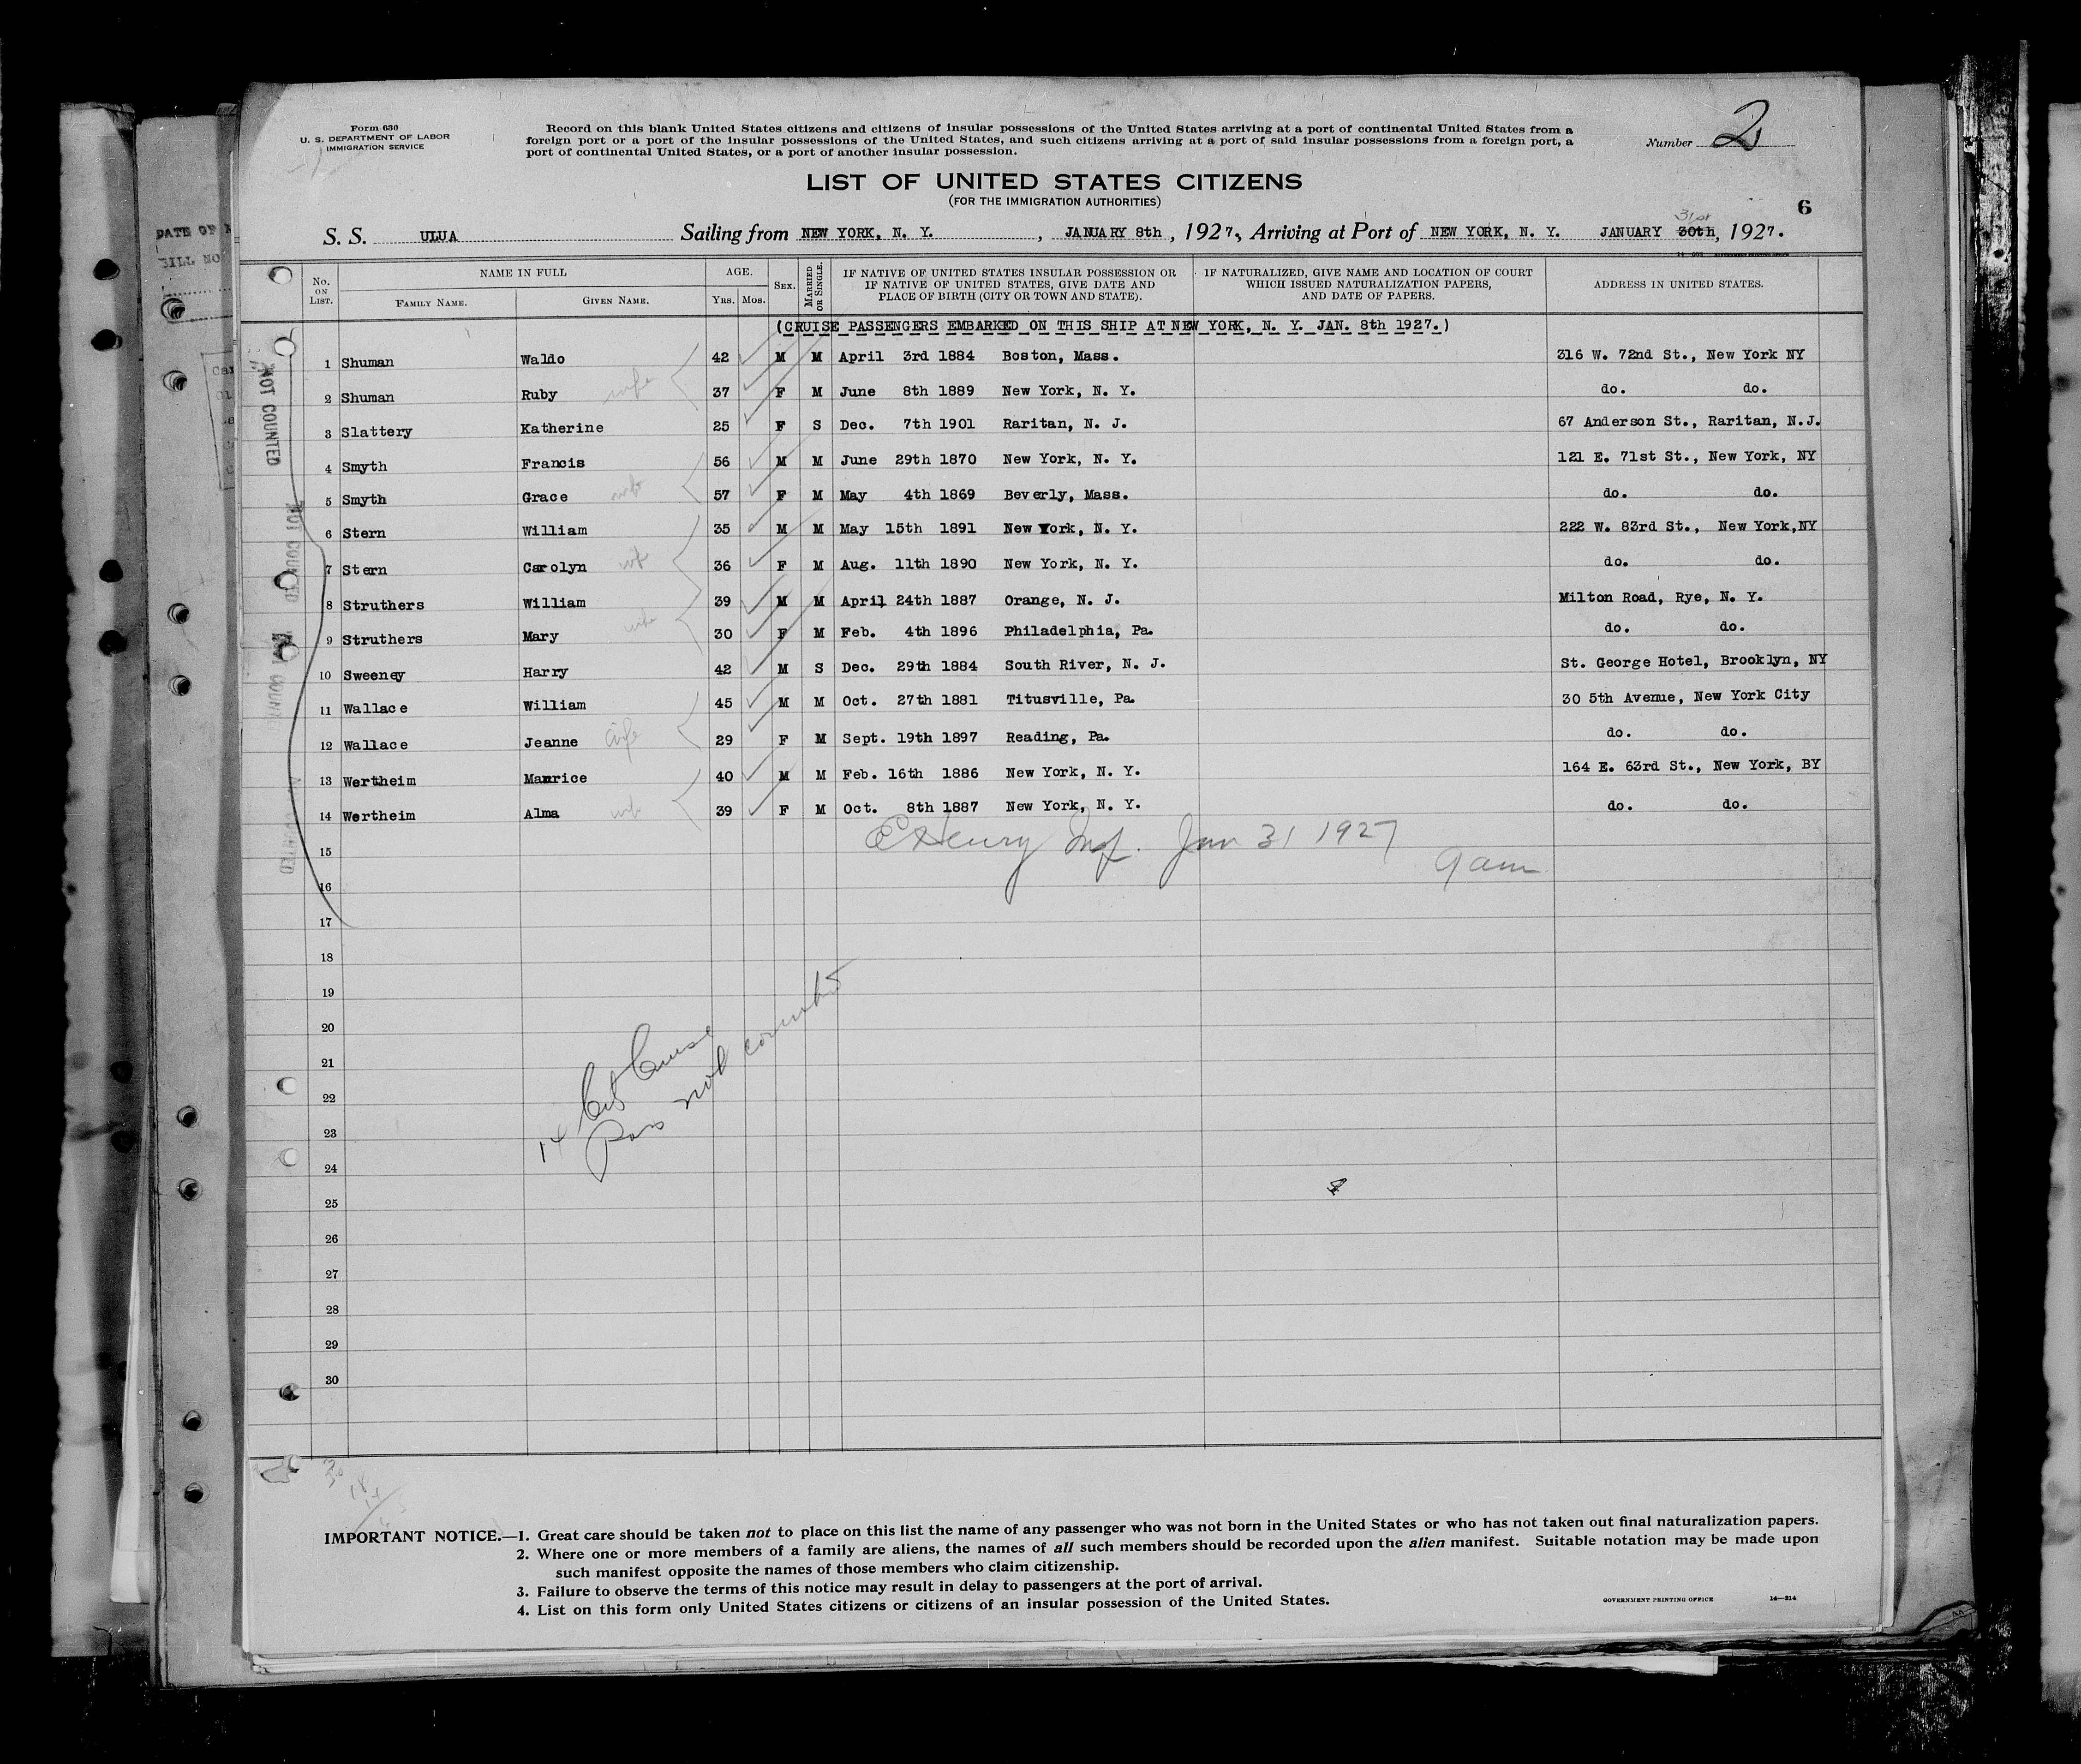 Form 630
U. S. DEPARTMENT OF LABOR
IMMIGRATION SERVICE
Record on this blank United States citizens and citizens of insular possessions of the United States arriving at a port of continental United States from a
foreign port or a port of the insular possessions of the United States, and such citizens arriving at a port of said insular possessions from a foreign port, a
port of continental United States, or a port of another insular possession.
Number 2
LIST OF UNITED STATES CITIZENS
(FOR THE IMMIGRATION AUTHORITIES)
6
31st
S. S. ULUA Sailing from NEW YORK, N. Y. , JANUARY 8th , 1927, Arriving at Port of NEW YORK, N. Y. JANUARY 30th, 1927.
No. ON LIST. NAME IN FULL FAMILY NAME. GIVEN NAME. AGE. Yrs. Mos. SEX. MARRIED OR SINGLE. IF NATIVE OF UNITED STATES INSULAR POSSESSION OR IF NATIVE OF UNITED STATES, GIVE DATE AND PLACE OF BIRTH (CITY OR TOWN AND STATE). IF NATURALIZED, GIVE NAME AND LOCATION OF COURT WHICH ISSUED NATURALIZATION PAPERS, AND DATE OF PAPERS. ADDRESS IN UNITED STATES.
(CRUISE PASSENGERS EMBARKED ON THIS SHIP AT NEW YORK, N. Y. JAN. 8th 1927.)
1 Shuman Waldo 42 M M April 3rd 1884 Boston, Mass. 316 W. 72nd St., New York NY
2 Shuman Ruby wife 37 F M June 8th 1889 New York, N. Y. do. do.
3 Slattery Katherine 25 F S Dec. 7th 1901 Raritan, N. J. 67 Anderson St., Raritan, N.J.
4 Smyth Francis 56 M M June 29th 1870 New York, N. Y. 121 E. 71st St., New York, NY
5 Smyth Grace wife 57 F M May 4th 1869 Beverly, Mass. do. do.
6 Stern William 35 M M May 15th 1891 New York, N. Y. 222 W. 83rd St., New York,NY
7 Stern Carolyn wife 36 F M Aug. 11th 1890 New York, N. Y. do. do.
8 Struthers William 39 M M April 24th 1887 Orange, N. J. Milton Road, Rye, N. Y.
9 Struthers Mary wife 30 F M Feb. 4th 1896 Philadelphia, Pa. do. do.
10 Sweeney Harry 42 M S Dec. 29th 1884 South River, N. J. St. George Hotel, Brooklyn, NY
11 Wallace William 45 M M Oct. 27th 1881 Titusville, Pa. 30 5th Avenue, New York City
12 Wallace Jeanne wife 29 F M Sept. 19th 1897 Reading, Pa. do. do.
13 Wertheim Maurice 40 M M Feb. 16th 1886 New York, N. Y. 164 E. 63rd St., New York, BY
14 Wertheim Alma wife 39 F M Oct. 8th 1887 New York, N. Y. do. do.
Henry Insp. Jan 31 1927
9 am
15
16
17
18
19
20
21
22
23
24
25
26
27
28
29
30
14 Cit Cruise
Pass not counted
NOT COUNTED
NOT COUNTED
IMPORTANT NOTICE.—1. Great care should be taken not to place on this list the name of any passenger who was not born in the United States or who has not taken out final naturalization papers.
2. Where one or more members of a family are aliens, the names of all such members should be recorded upon the alien manifest. Suitable notation may be made upon
such manifest opposite the names of those members who claim citizenship.
3. Failure to observe the terms of this notice may result in delay to passengers at the port of arrival.
4. List on this form only United States citizens or citizens of an insular possession of the United States.
GOVERNMENT PRINTING OFFICE 14—214